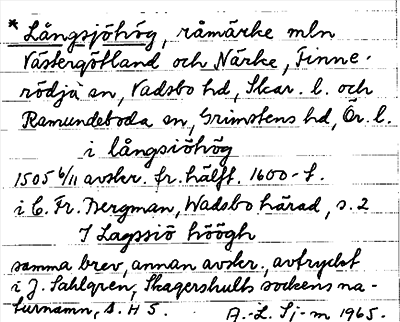 * Långsjöhög, råmärke mln
Västergötland och Närke, Finne-
rödja sn, Vadsbo hd, Skar. l. och
Ramundeboda sn, Grimstens hd, Ör. l.
i långsiöhög
1505 6/11 avskr. fr. hälft. 1600-t.
i C. Fr. Bergman, Wadsbo härad, s. 2
I Lagssiö höögh
samma brev, annan avskr., avtryckt
i J. Sahlgren, Skagershults sockens na-
turnamn, s. H 5.
A.-L. Sj-m 1965.